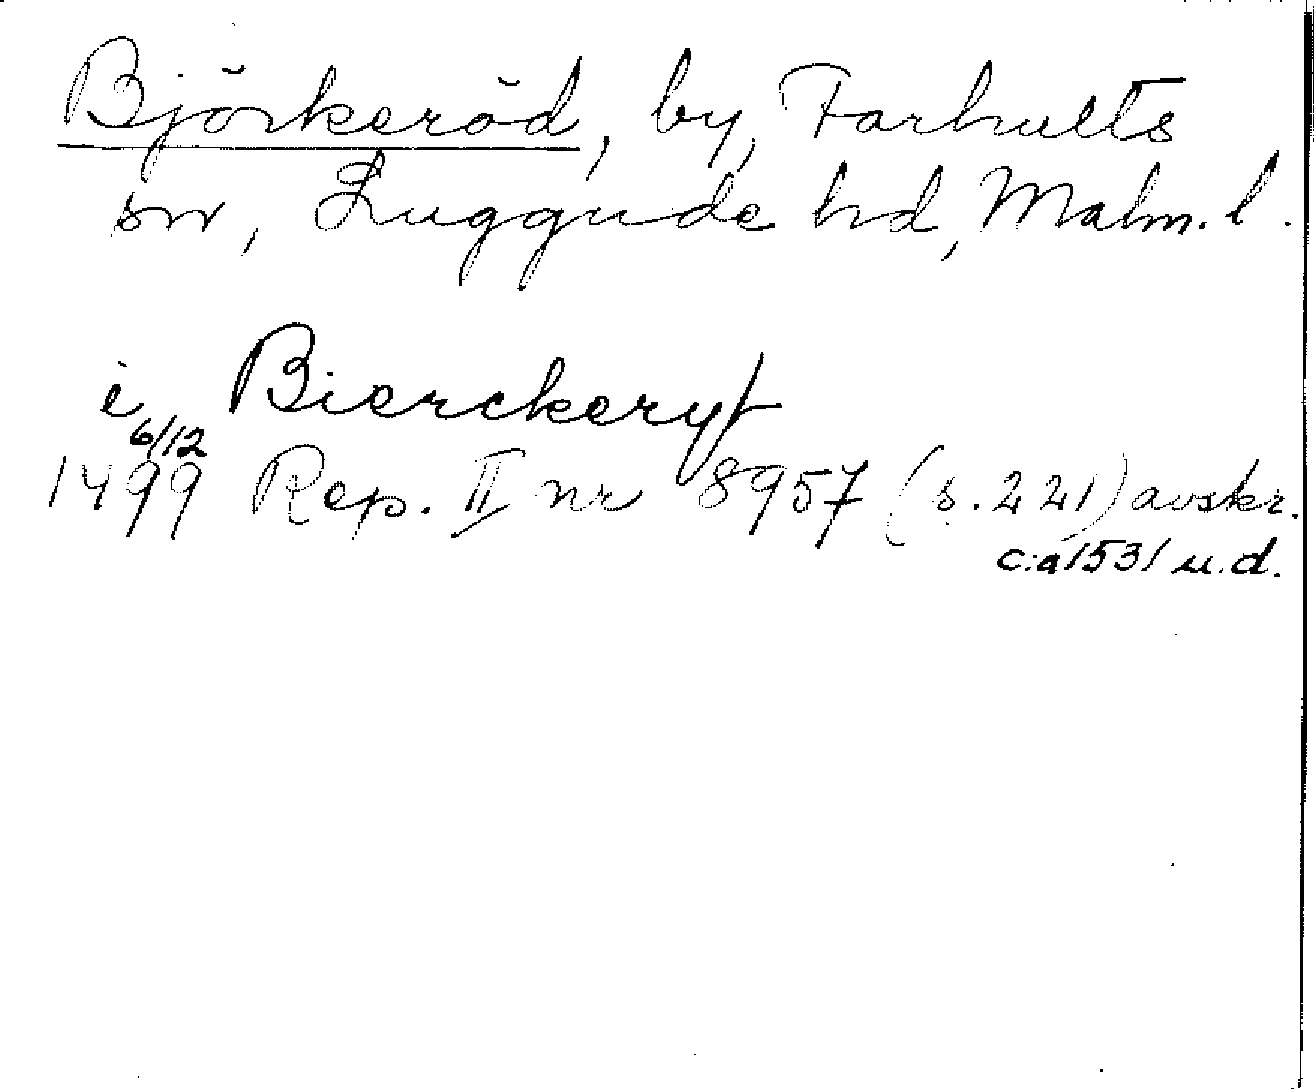 Björkeröd, by, Farhults
sn, Luggude hd, Malm. l.
i Bierckeryt
6/12
1499 Rep. II nr 8957 (s. 221) avskr.
c:a 1531 u.d.